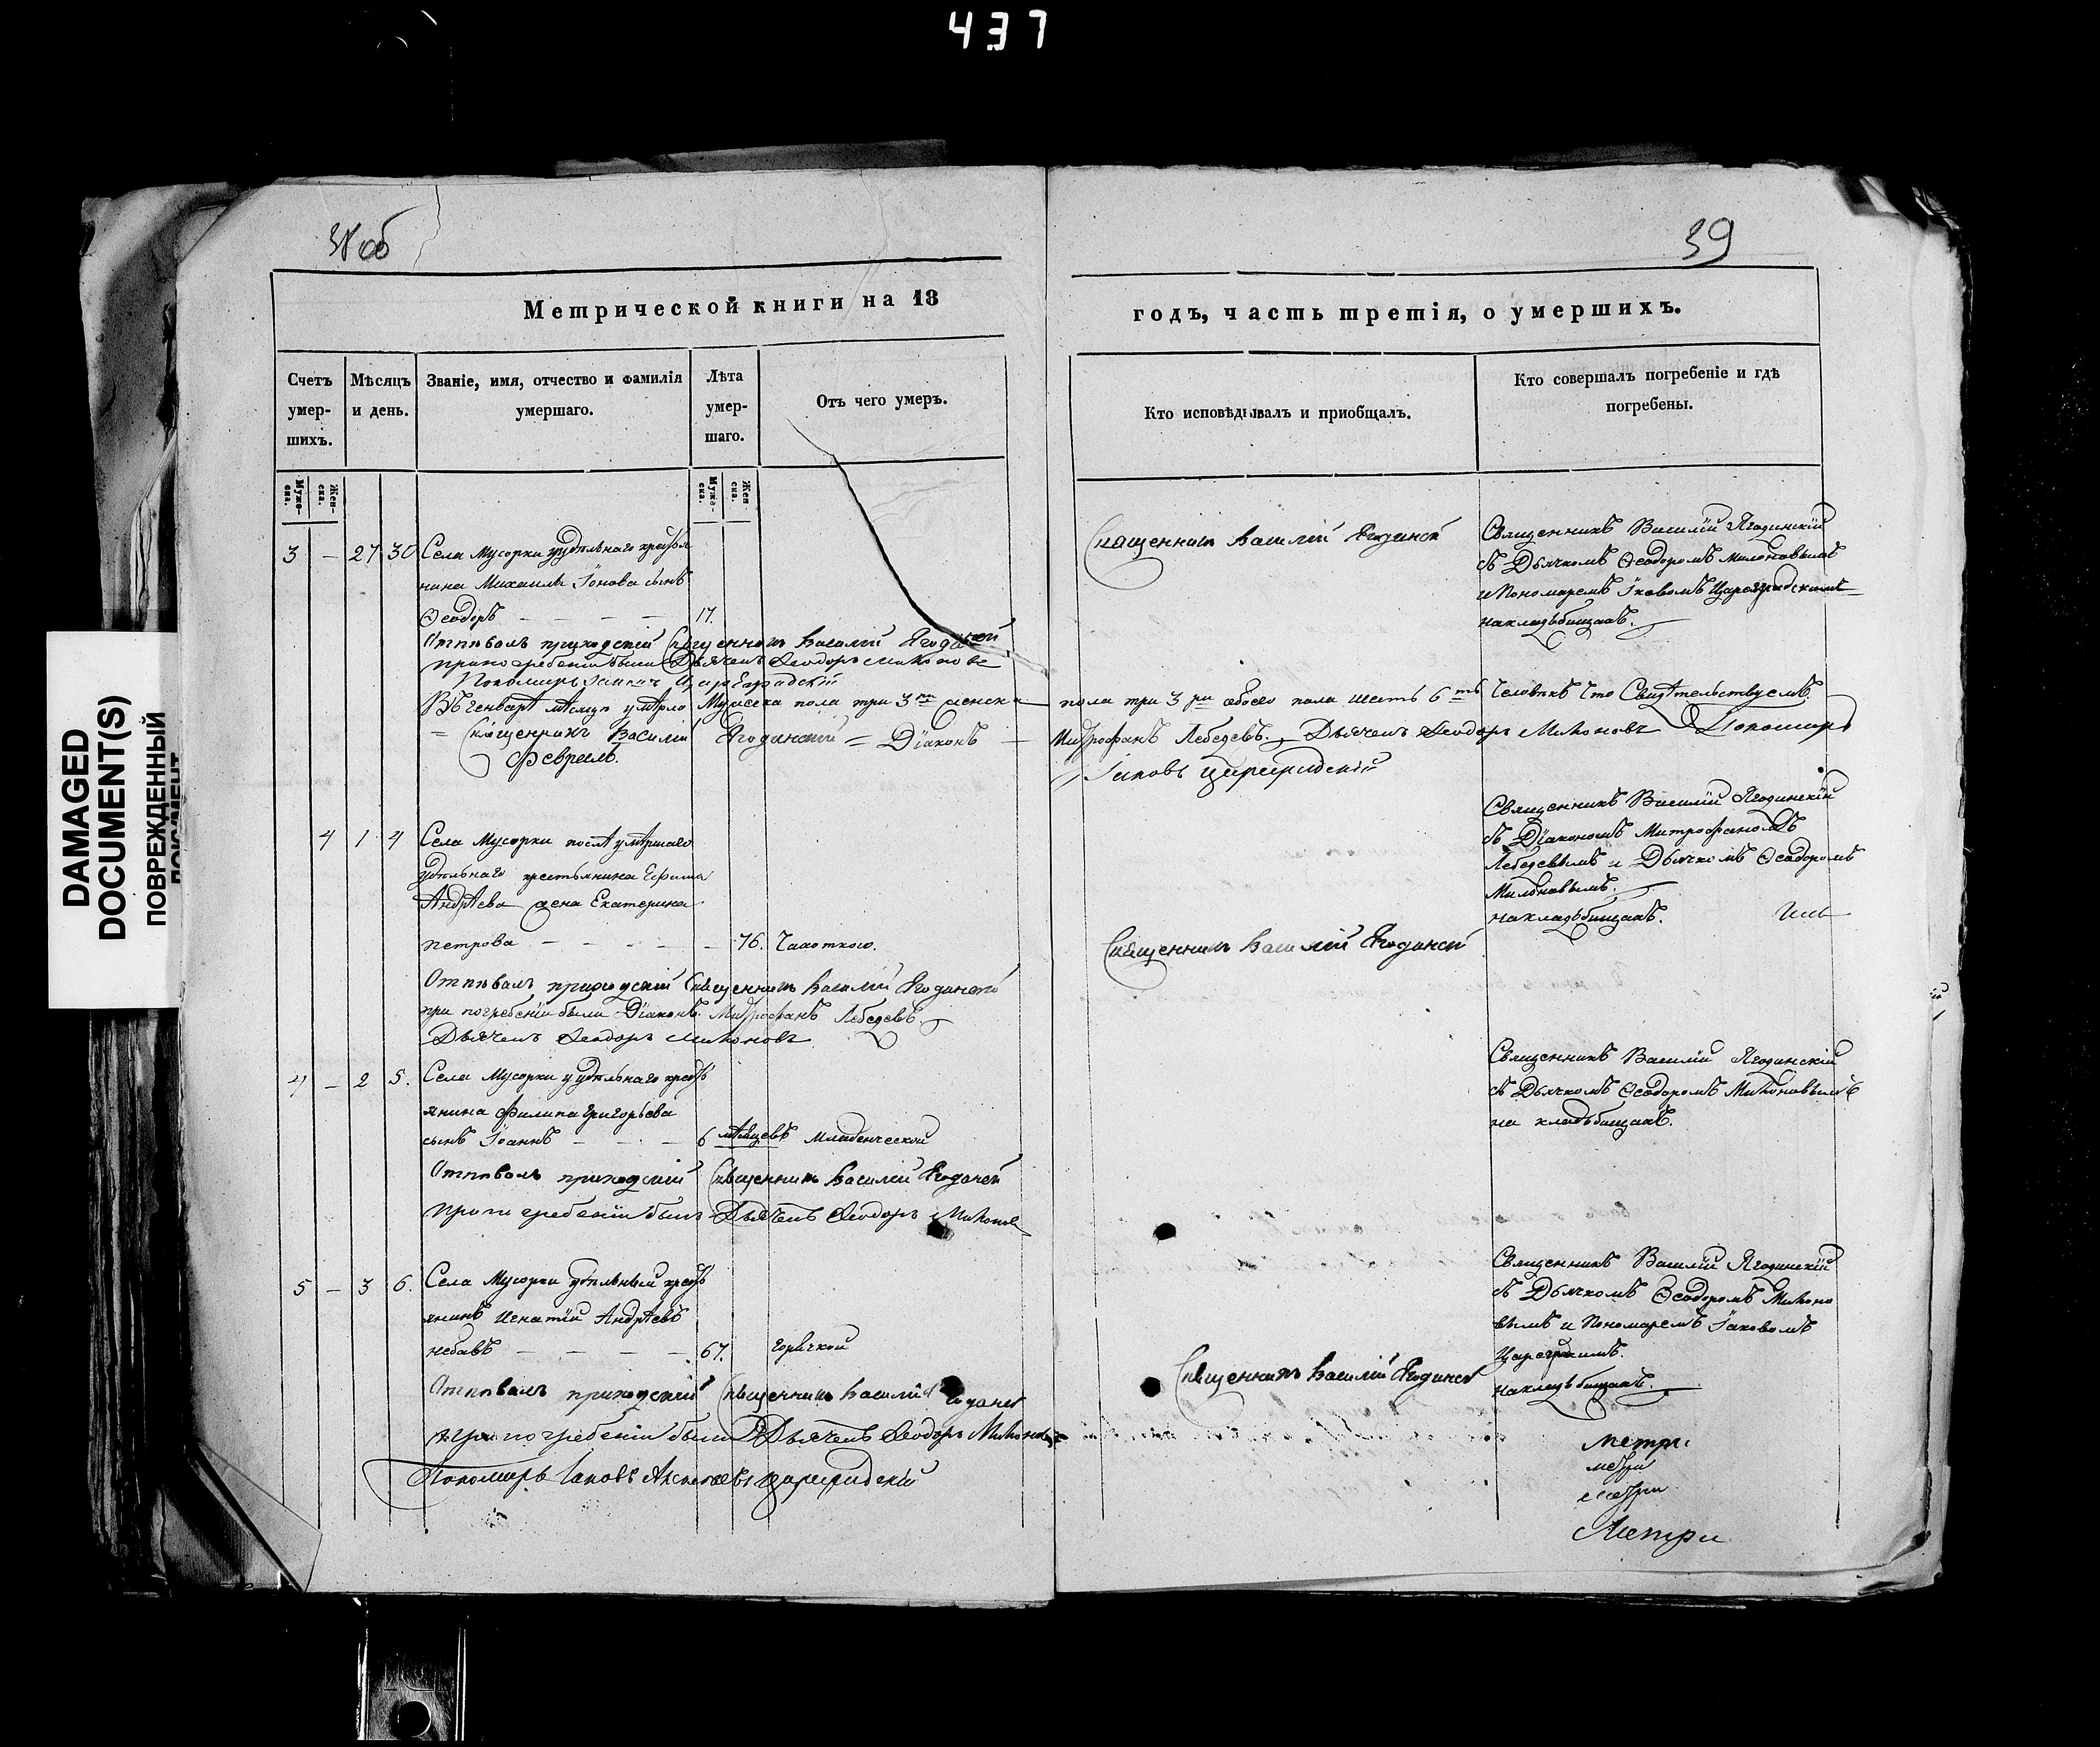 437
DAMAGED
DOCUMENT(S)
ПОВРЕЖДЕННЫЙ
ДОКУМЕНТ
39
Метрической книги на 18
годъ, часть третія, о умершихъ.
Счетъ умер-шихъ.
Мѣсяцъ и день.
Званіе, имя, отчество и фамилія умершаго.
Лѣта умер-шаго.
Отъ чего умеръ.
Кто исповѣдывалъ и пріобщалъ.
Кто совершалъ погребеніе и гдѣ погребены.
Муже-ска.
Жен-ска.
Муже-ска.
Жен-ска.
3 — 27 30 Села Мусорки удѣльнаго крестья
нина Михаила Іонова сынъ
Ѳеодоръ — — — 17.
Священникъ Василій Ягодинск
Священникъ Василій Ягодинскій
съ Дьячкомъ Ѳеодоромъ Милоновымъ
и Пономаремъ Іаковомъ Цареградскимъ
на кладьбищахъ.
Отпѣвалъ приходскій Священникъ Василій Ягодинской
при погребеніи были Дьячекъ Ѳеодоръ Милоновъ
Пономарь Іаковъ Цареградскій
Въ Генварѣ мѣсяцѣ умѣрло Мужеска пола три 3 женска
пола три 3 ри обоего пола шесть 6ть Человѣкъ Что Свидѣтельствуемъ.
Священникъ Василій Ягодинскій = Діаконъ
Митрофанъ Лебедевъ. Дьячекъ Ѳеодоръ Милоновъ Пономарь
Іаковъ Цареградскій
Февраль.
4 1 4 Села Мусорки послѣ умѣршаго
удѣльнаго крестьянина Ефима
Андрѣева жена Екатерина
Петрова — — — 76. Чахоткою.
Священникъ Василій Ягодинскій
Священникъ Василій Ягодинскій
съ Діакономъ Митрофаномъ
Лебедевымъ и Дьячкомъ Ѳеодоромъ
Милоновымъ.
на кладьбищахъ.
Отпѣвалъ приходскій Священникъ Василій Ягодинской
при погребеніи были Діаконъ Митрофанъ Лебедевъ
Дьячекъ Ѳеодоръ Милоновъ
4 — 2 5. Села Мусорки удѣльнаго кресть
янина Филипа Григорьева
сынъ Іоаннъ — — — 6 мѣсяцевъ Младенческой
Священникъ Василій Ягодинскій
съ Дьячкомъ Ѳеодоромъ Милоновымъ
на кладьбищахъ.
Отпѣвалъ приходскій Священникъ Василій Ягодинской
при погребеніи былъ Дьячекъ Ѳеодоръ Милонов
5 — 3 6. Села Мусорки удѣльный кресть
янинъ Игнатій Андрѣевъ
— — — 67. горячкой
Священникъ Василій Ягодинск
Священникъ Василій Ягодинскій
съ Дьячкомъ Ѳеодоромъ Милоно
вымъ и Пономаремъ Іаковомъ
Цареградскимъ.
на кладьбищахъ.
Отпѣвалъ приходскій Священникъ Василій
при погребеніи были Дьячекъ Ѳеодоръ Милонов
Пономарь Іаковъ Цареградскій
Метри
метри
метри
Метри